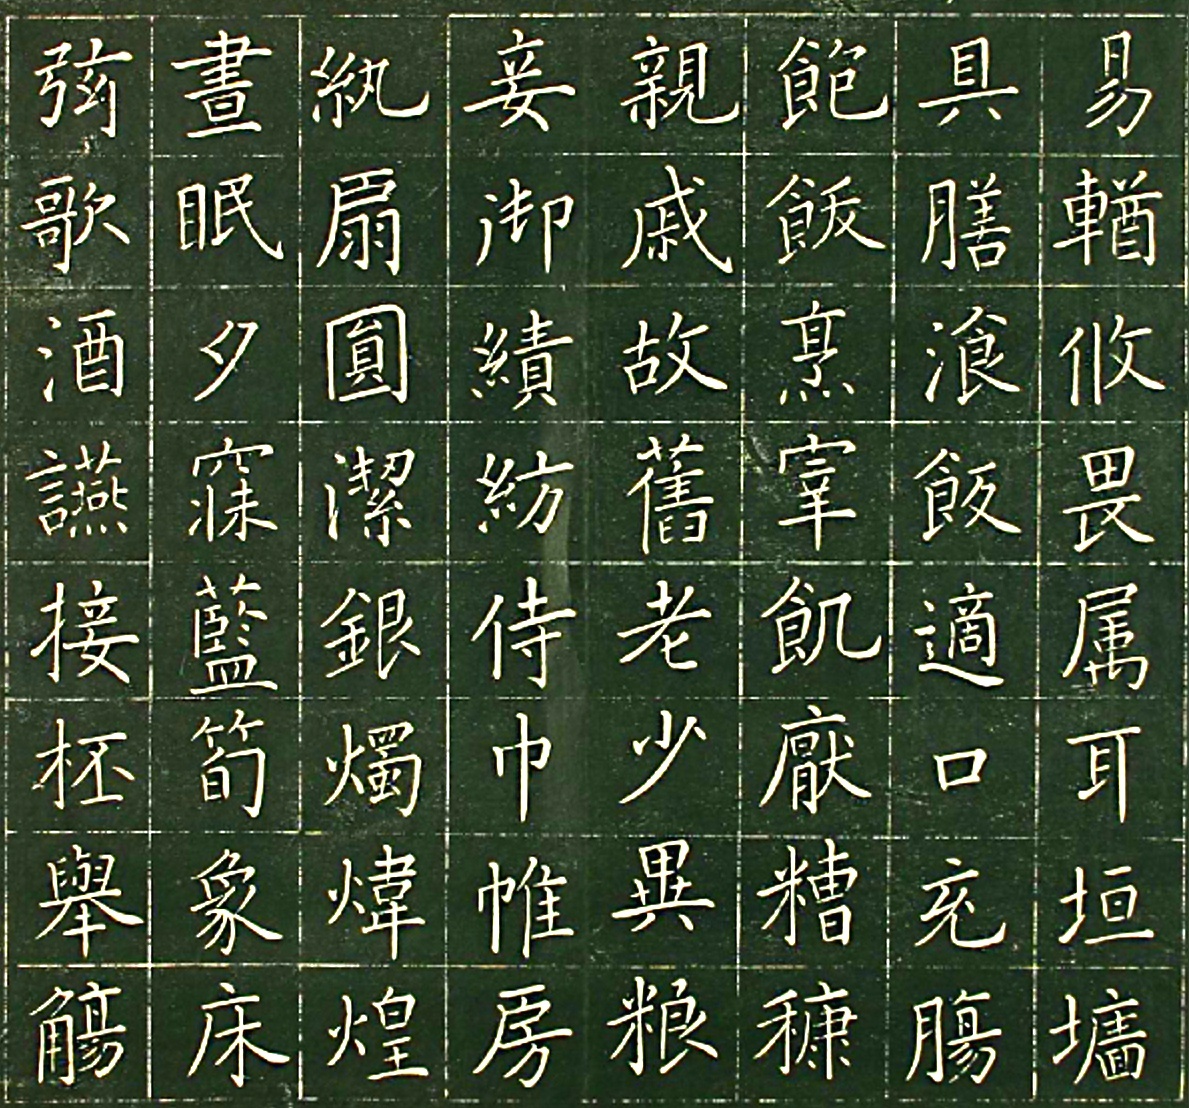 易輶攸畏属耳垣墻
具膳湌飯適口充腸
飽飫烹宰飢厭糟糠
親戚故舊老少異粮
妾御績紡侍巾帷房
紈扇圓潔銀燭煒煌
晝眠夕寐藍筍象床
弦歌酒讌接杯舉觴